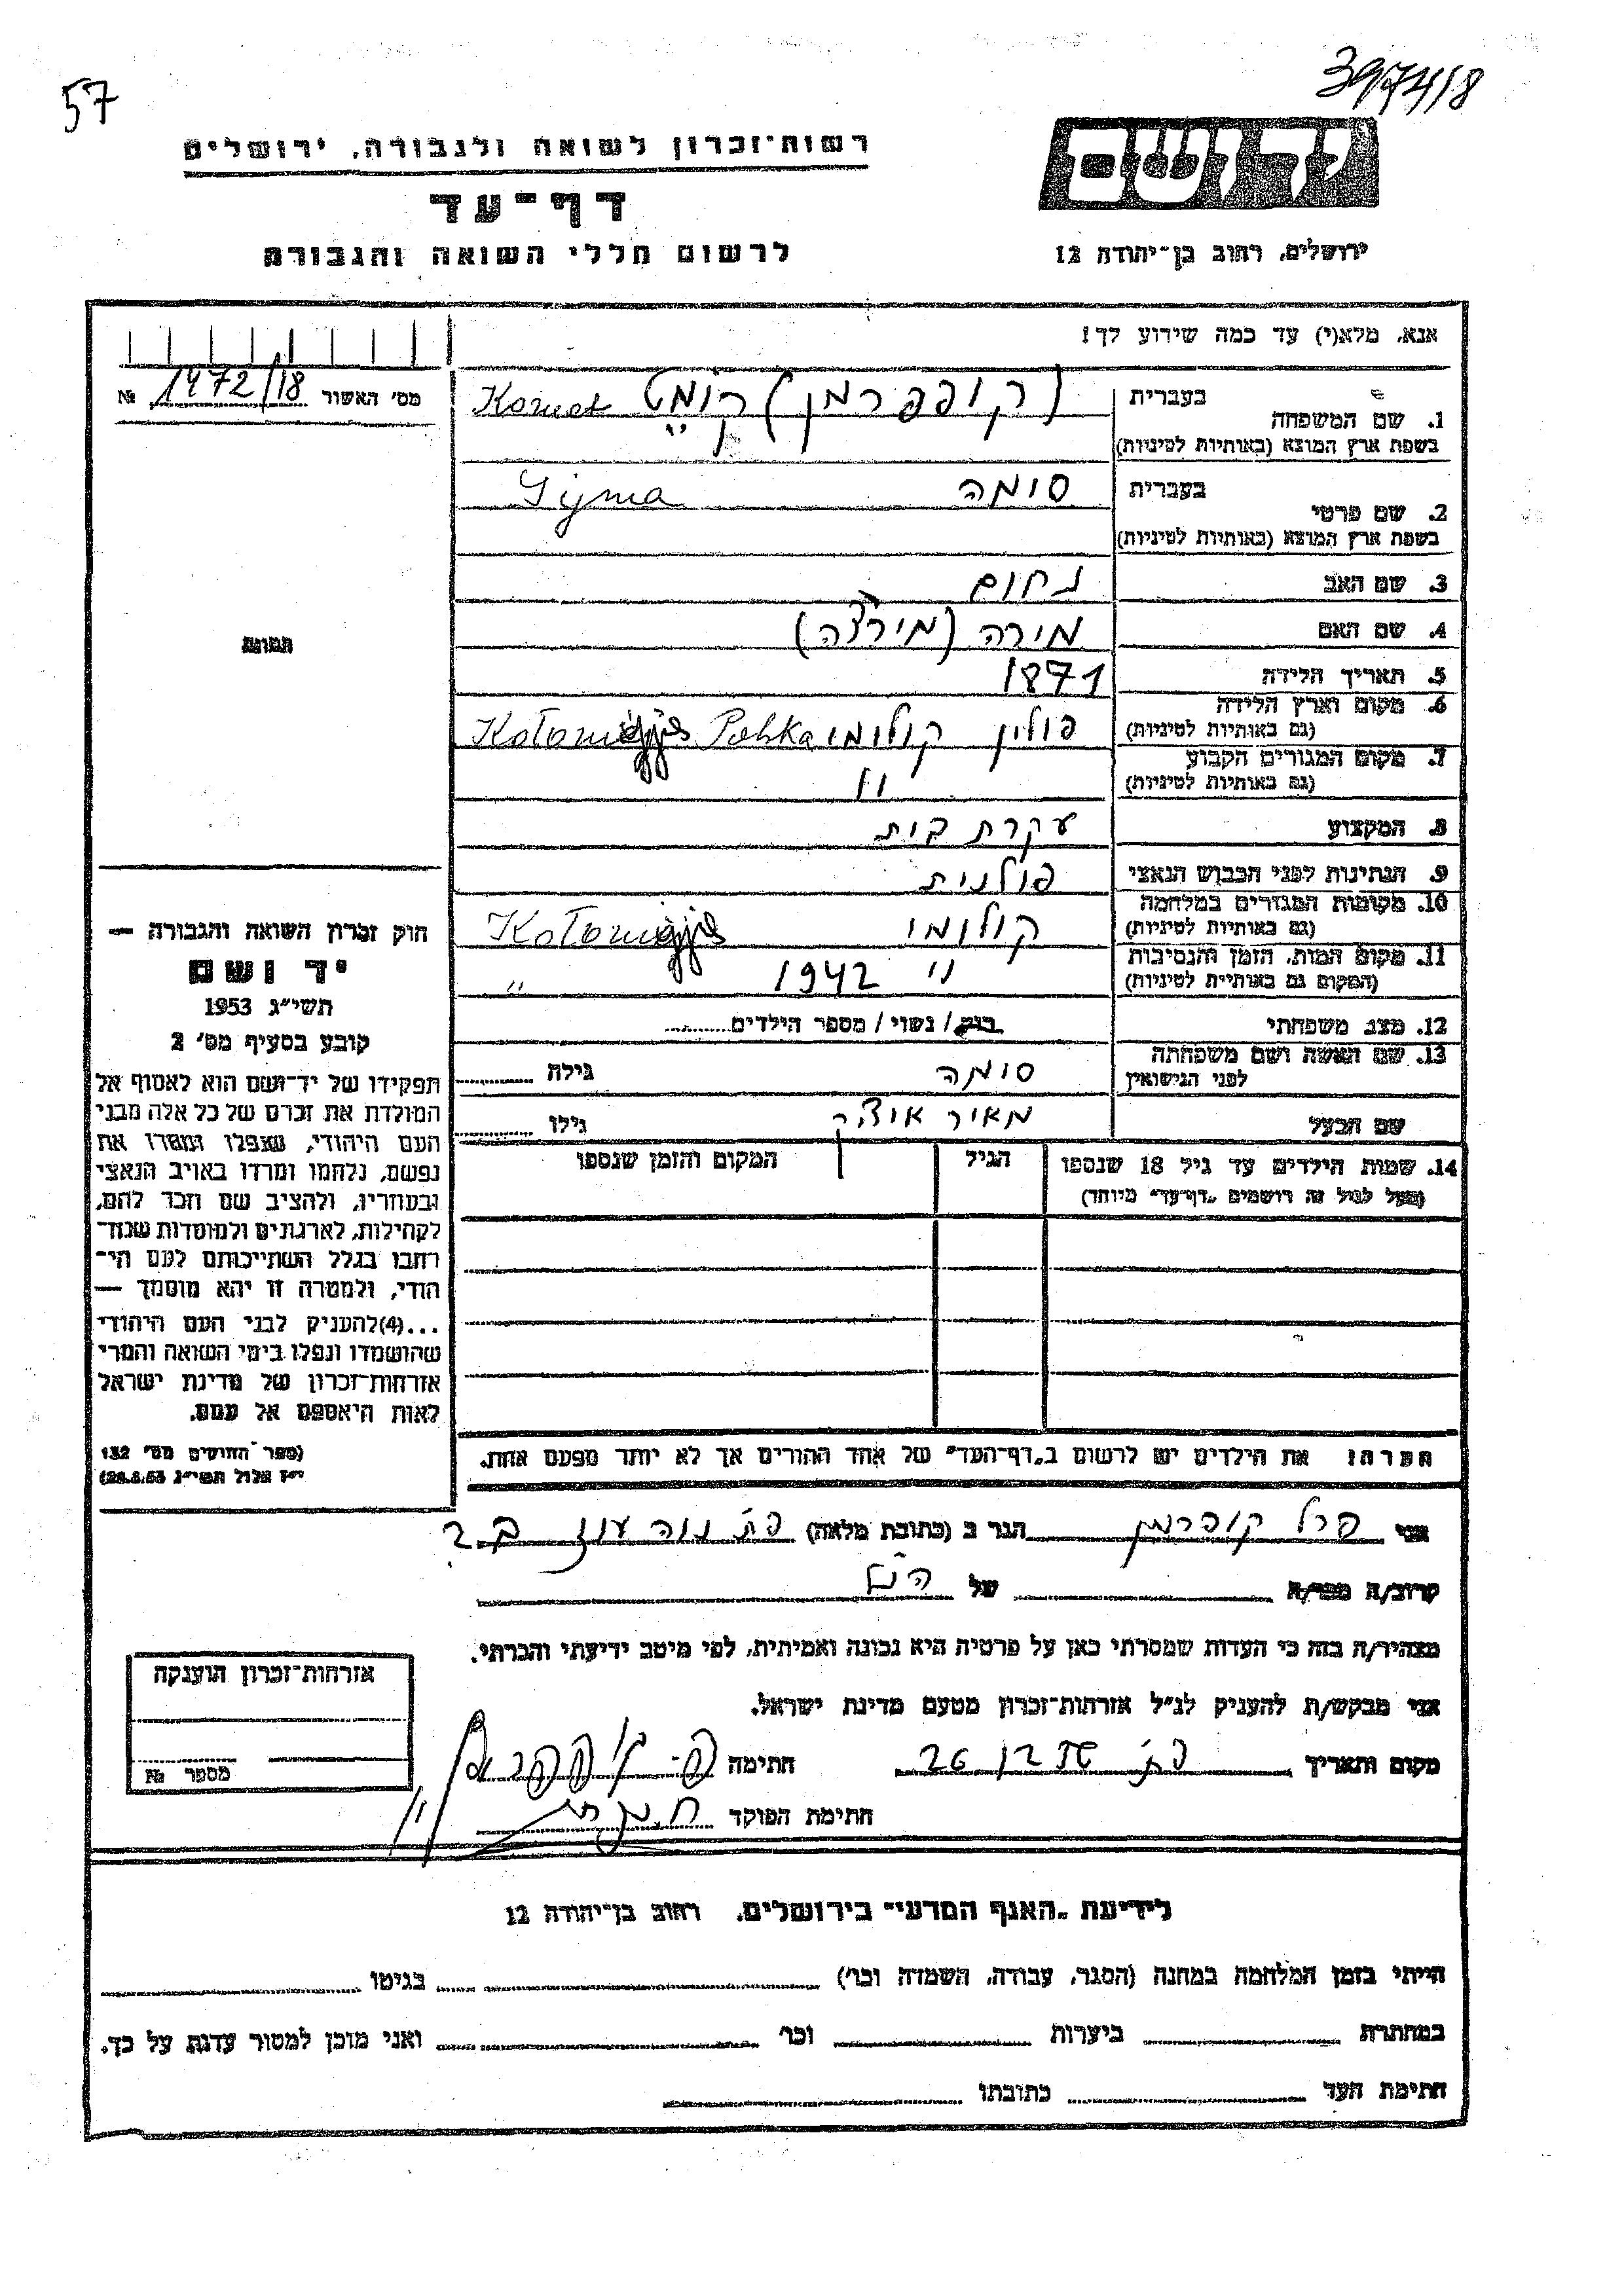 57
397418
רשות־זכרון לשואה ולגבורה, ירושלים
יד ושם
דף־עד
לרשום חללי השואה והגבורה
ירושלים, רחוב בן־יהודה 12
אנא, מלא(י) עד כמה שידוע לך!
מס' האשור № 1472/18
1. שם המשפחה בעברית (קופפרמן)
בשפת ארץ המוצא (באותיות לטיניות)
2. שם פרטי בעברית סומה
בשפת ארץ המוצא (באותיות לטיניות)
3. שם האב נחום
4. שם האם מירה
5. תאריך הלידה 1871
6. מקום וארץ הלידה פולין קולומי Polska
(גם באותיות לטיניות)
7. מקום המגורים הקבוע "
(גם באותיות לטיניות)
8. המקצוע עקרת בית
9. הנתינות לפני הכבוש הנאצי פולנית
10. מקומות המגורים במלחמה קולומי
(גם באותיות לטיניות)
11. מקום המות, הזמן והנסיבות " 1942 "
(המקום גם באותיות לטיניות)
12. מצב משפחתי רווק/ נשוי/ מספר הילדים
13. שם האשה ושם משפחתה סומה גילה
לפני הנישואין
שם הבעל מאיר גילו
14. שמות הילדים עד גיל 18 שנספו הגיל המקום והזמן שנספו
(מעל לגיל זה רושמים "דף־עד" מיוחד)
הערה! את הילדים יש לרשום ב"דף־העד" של אחד ההורים אך לא יותר מפעם אחת.
תמונה
חוק זכרון השואה והגבורה —
יד ושם
תשי"ג 1953
קובע בסעיף מס' 2
תפקידו של יד־ושם הוא לאסוף אל
המולדת את זכרם של כל אלה מבני
העם היהודי, שנפלו ומסרו את
נפשם, נלחמו ומרדו באויב הנאצי
ובעוזריו, ולהציב שם וזכר להם,
לקהילות, לארגונים ולמוסדות שנח־
רבו בגלל השתייכותם לעם הי־
הודי, ולמטרה זו יהא מוסמך —
...(4)להעניק לבני העם היהודי
שהושמדו ונפלו בימי השואה והמרי
אזרחות־זכרון של מדינת ישראל
לאות היאספם אל עמם.
(ספר החוקים מס' 132
י"ז אלול תשי"ג 28.8.53)
אני פרל קופרמן הגר ב (כתובת מלאה) פת נוה עוז
קרוב/ה מכר/ה של
מצהיר/ה בזה כי העדות שמסרתי כאן על פרטיה היא נכונה ואמיתית, לפי מיטב ידיעתי והכרתי.
אני מבקש/ת להעניק לנ"ל אזרחות־זכרון מטעם מדינת ישראל.
מקום ותאריך חתימה
חתימת הפוקד
אזרחות־זכרון הוענקה
מספר №
לידיעת "האגף המדעי" בירושלים, רחוב בן־יהודה 12
הייתי בזמן המלחמה במחנה (הסגר, עבודה, השמדה וכו') בגיטו
במחתרת ביערות וכו' ואני מוכן למסור עדות על כך.
חתימת העד כתובתו